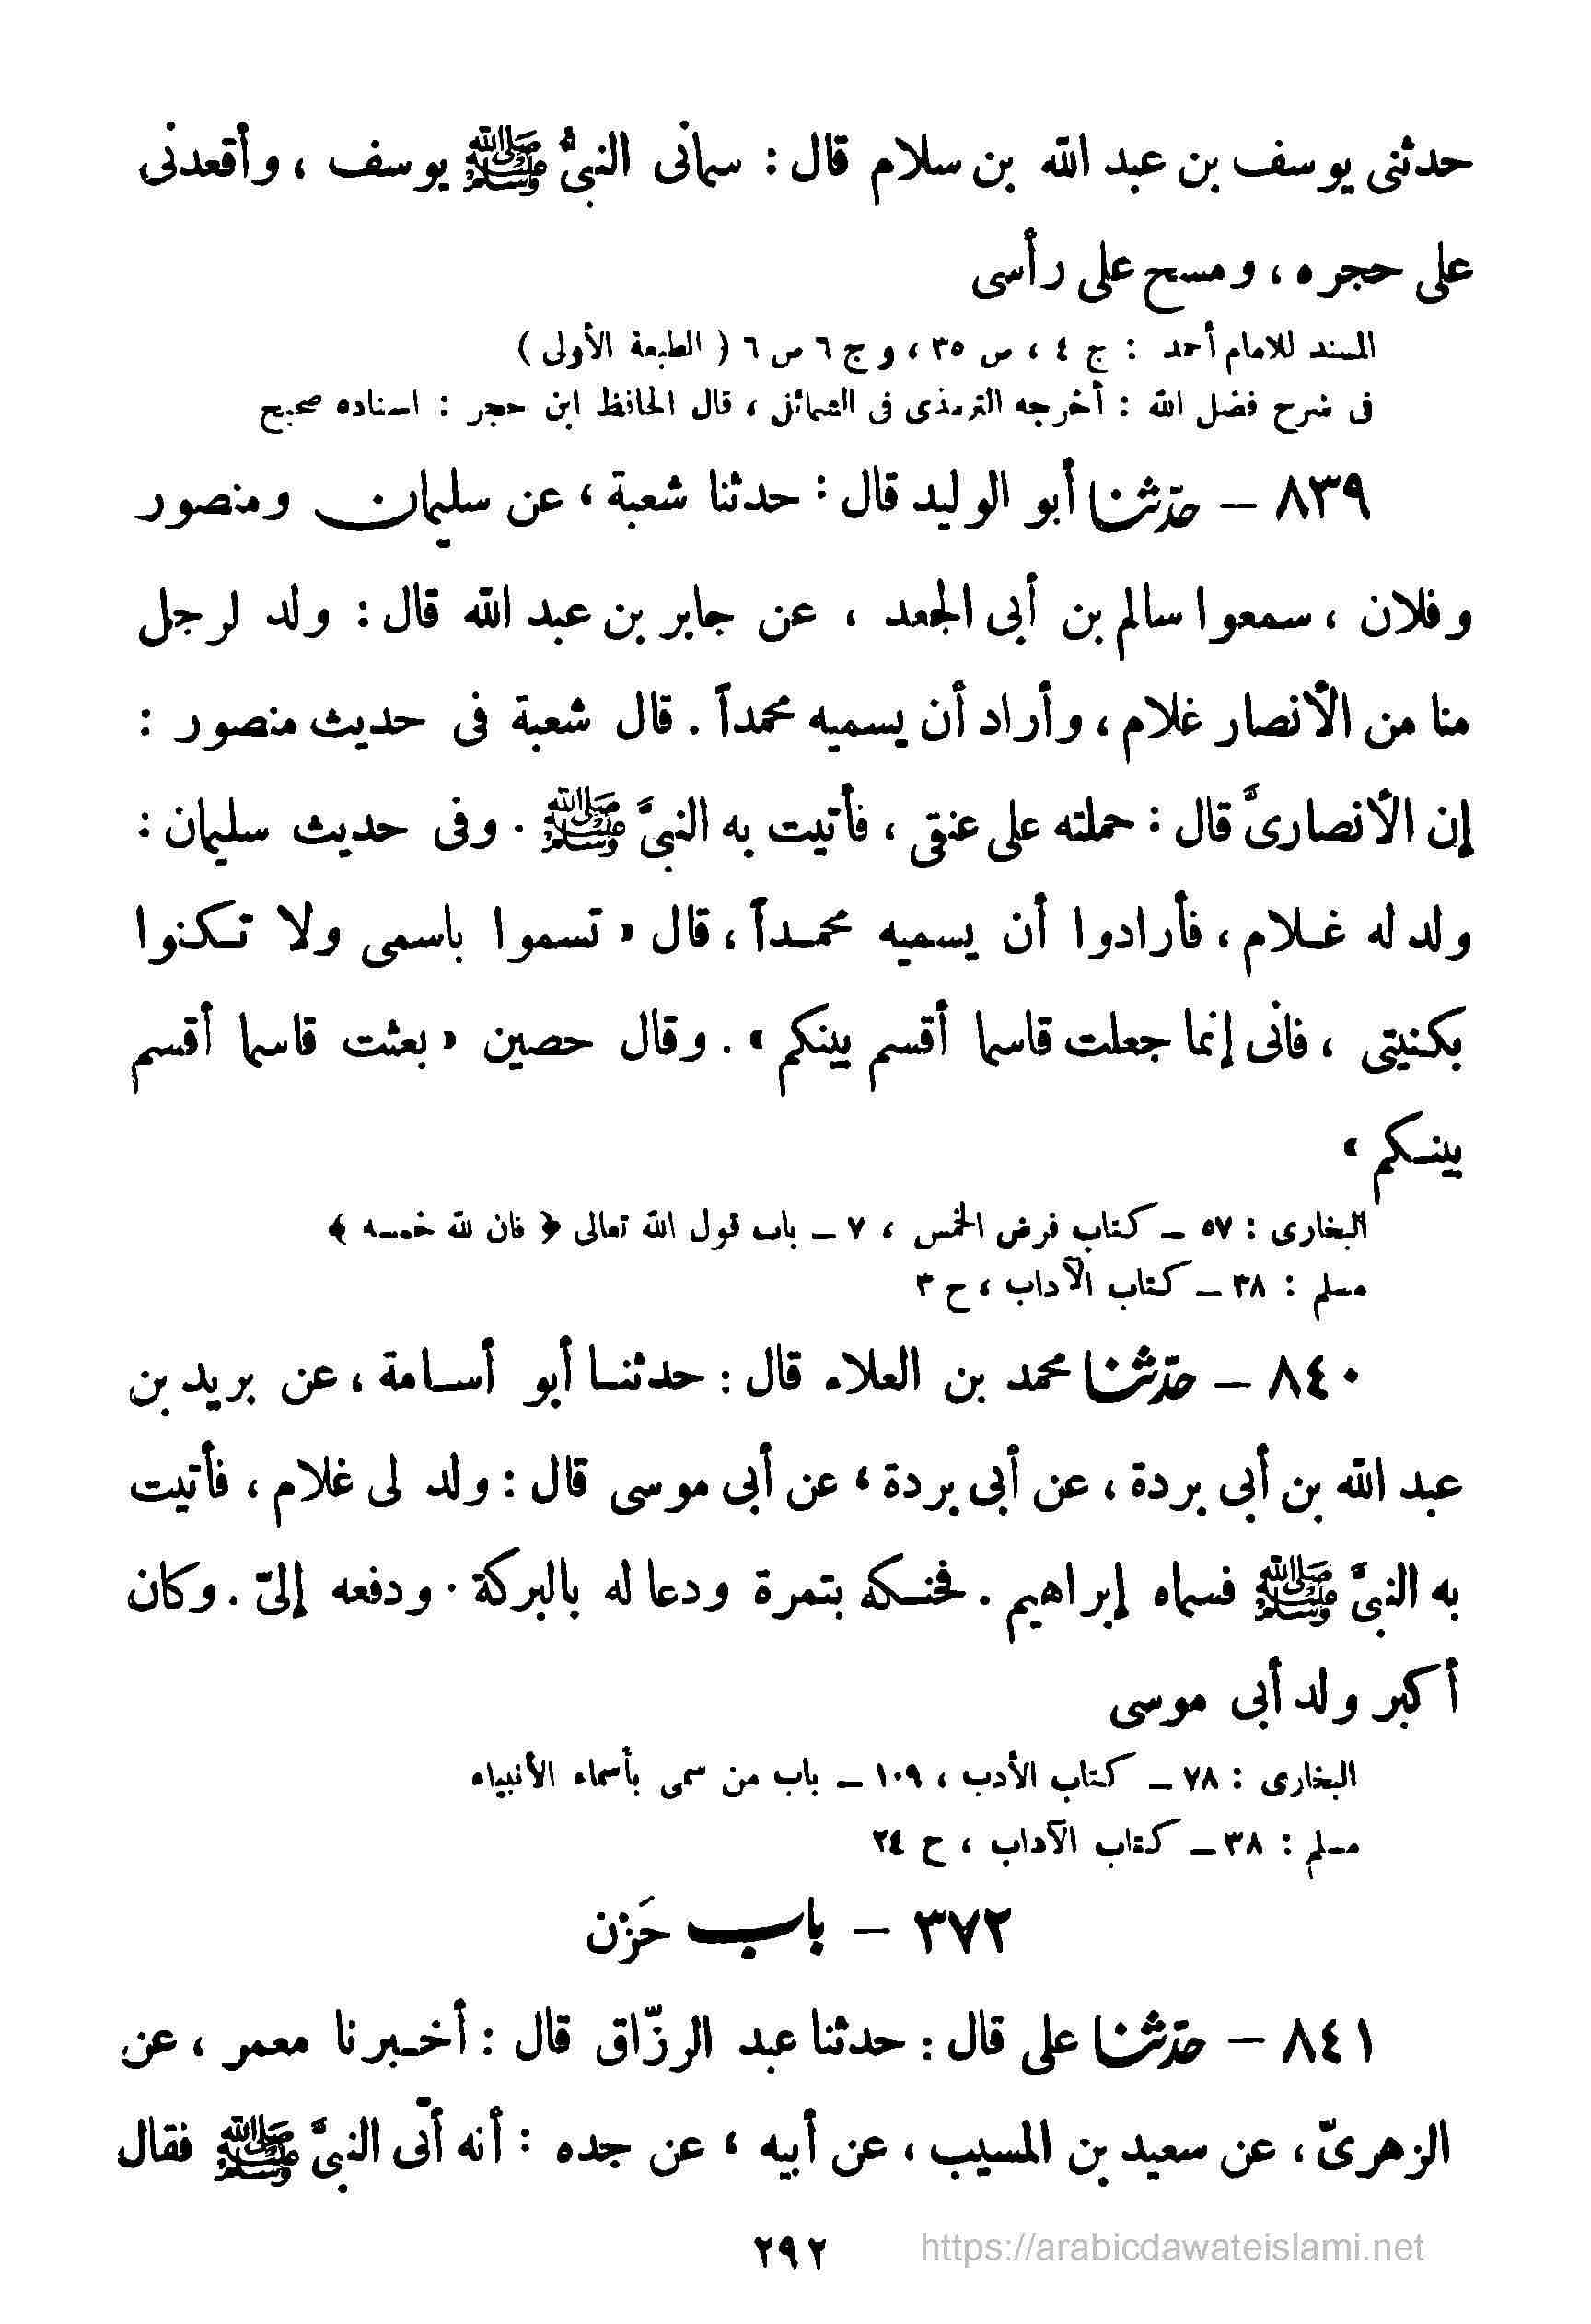 حدثنى يوسف بن عبد الله بن سلام قال : سمانى النبىُّ ﷺ يوسف ، وأقعدنى
على حجره ، ومسح على رأسى
المسند للامام أحمد : ج ٤ ، ص ٣٥ ، و ج ٦ ص ٦ ( الطبعة الأولى )
فى شرح فضل الله : أخرجه الترمذى فى الشمائل ، قال الحافظ ابن حجر : اسناده صحيح
٨٣٩ – حدّثنا أبو الوليد قال : حدثنا شعبة ، عن سليمان ومنصور
وفلان ، سمعوا سالم بن أبى الجعد ، عن جابر بن عبد الله قال : ولد لرجل
منا من الأنصار غلام ، وأراد أن يسميه محمداً . قال شعبة فى حديث منصور :
إن الأنصارىَّ قال : حملته على عنقى ، فأتيت به النبىَّ ﷺ . وفى حديث سليمان :
ولد له غلام ، فأرادوا أن يسميه محمداً ، قال « تسموا باسمى ولا تكنوا
بكنيتى ، فانى إنما جعلت قاسما أقسم بينكم » . وقال حصين « بعثت قاسما أقسم
بينكم »
البخارى : ٥٧ – كتاب فرض الخمس ، ٧ – باب قول الله تعالى ﴿ فان لله خمسه ﴾
مسلم : ٣٨ – كتاب الآداب ، ح ٣
٨٤٠ – حدّثنا محمد بن العلاء قال : حدثنا أبو أسامة ، عن بريد بن
عبد الله بن أبى بردة ، عن أبى بردة ، عن أبى موسى قال : ولد لى غلام ، فأتيت
به النبىَّ ﷺ فسماه إبراهيم . فحنكه بتمرة ودعا له بالبركة . ودفعه إلىّ . وكان
أكبر ولد أبى موسى
البخارى : ٧٨ – كتاب الأدب ، ١٠٩ – باب من سمى بأسماء الأنبياء
مسلم : ٣٨ – كتاب الآداب ، ح ٢٤
٣٧٢ – باب حَزْن
٨٤١ – حدّثنا على قال : حدثنا عبد الرزّاق قال : أخبرنا معمر ، عن
الزهرىّ ، عن سعيد بن المسيب ، عن أبيه ، عن جده : أنه أتى النبىَّ ﷺ فقال
٢٩٢
https://arabicdawateislami.net